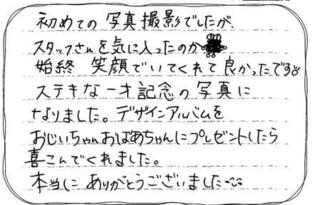 初めての写真撮影でしたが、
スタッフさんを気に入ったのか
始終 笑顔でいてくれて良かったです
ステキな一才記念の写真に
なりました。デザインアルバムを
おじいちゃんおばあちゃんにプレゼントしたら
喜こんでくれました。
本当に ありがとうございました